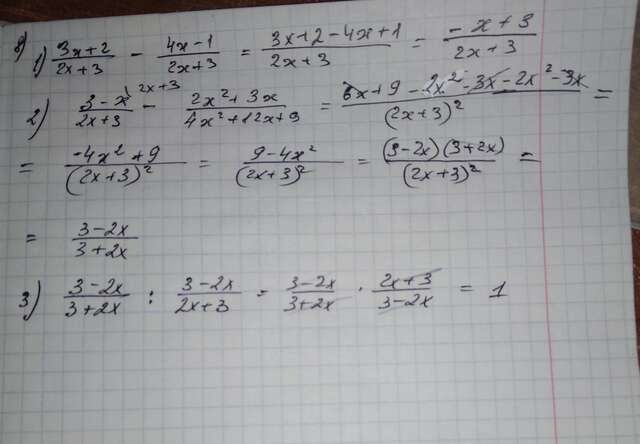 8) 1) (3x+2)/(2x+3) - (4x-1)/(2x+3) = (3x+2-4x+1)/(2x+3) = (-x+3)/(2x+3)
2) (3-x)/(2x+3) ^(2x+3) - (2x²+3x)/(4x²+12x+9) = (6x+9-2x²-3x-2x²-3x)/(2x+3)² =
= (-4x²+9)/(2x+3)² = (9-4x²)/(2x+3)² = (3-2x)(3+2x)/(2x+3)² =
= (3-2x)/(3+2x)
3) (3-2x)/(3+2x) : (3-2x)/(2x+3) = (3-2x)/(3+2x) · (2x+3)/(3-2x) = 1